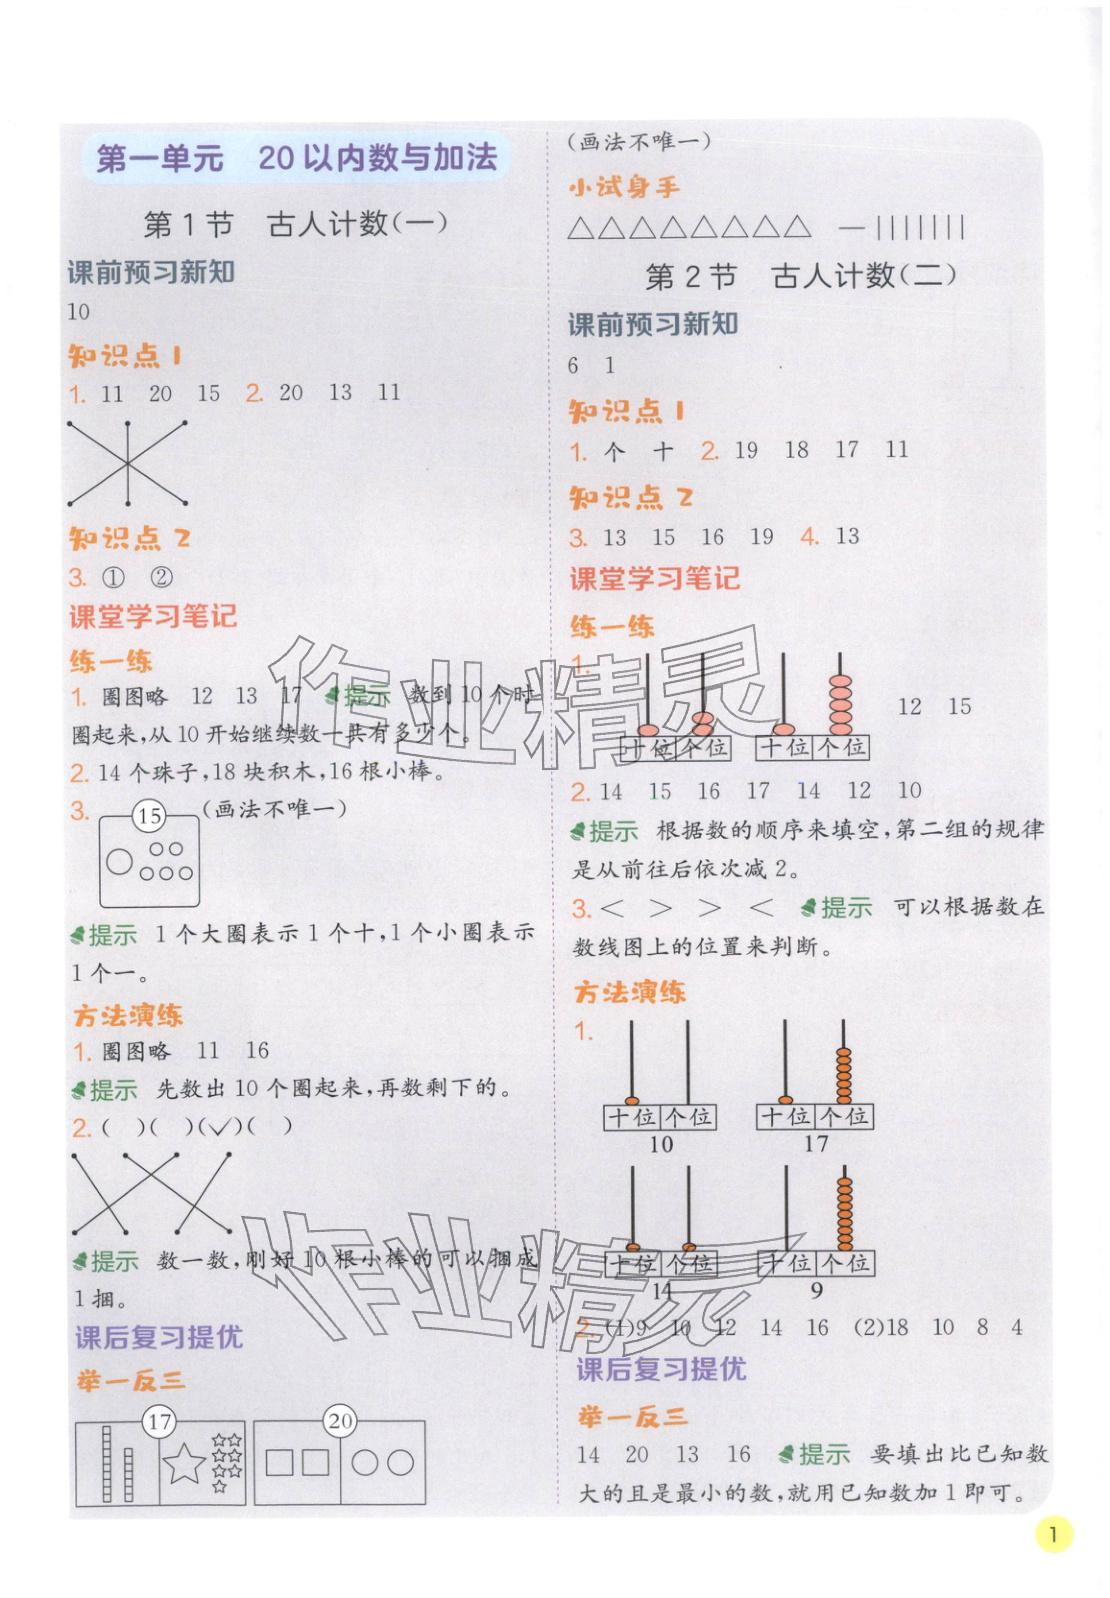 第一单元 20以内数与加法
第1节 古人计数(一)
课前预习新知
10
知识点1
1. 11 20 15 2. 20 13 11
知识点2
3. ① ②
课堂学习笔记
练一练
1. 圈图略 12 13 17 提示 数到10个时
圈起来,从10开始继续数一共有多少个。
2. 14个珠子,18块积木,16根小棒。
3. 15 (画法不唯一)
提示 1个大圈表示1个十,1个小圈表示
1个一。
方法演练
1. 圈图略 11 16
提示 先数出10个圈起来,再数剩下的。
2. ( )( )(✓)( )
提示 数一数,刚好10根小棒的可以捆成
1捆。
课后复习提优
举一反三
17 20
(画法不唯一)
小试身手
△△△△△△△△ —|||||||
第2节 古人计数(二)
课前预习新知
6 1
知识点1
1. 个 十 2. 19 18 17 11
知识点2
3. 13 15 16 19 4. 13
课堂学习笔记
练一练
1.
十位 个位 十位 个位 12 15
2. 14 15 16 17 14 12 10
提示 根据数的顺序来填空,第二组的规律
是从前往后依次减2。
3. < > > < 提示 可以根据数在
数线图上的位置来判断。
方法演练
1.
十位 个位 十位 个位
10 17
十位 个位 十位 个位
11 9
2. (1)9 10 12 14 16 (2)18 10 8 4
课后复习提优
举一反三
14 20 13 16 提示 要填出比已知数
大的且是最小的数,就用已知数加1即可。
1
作业精灵
作业精灵